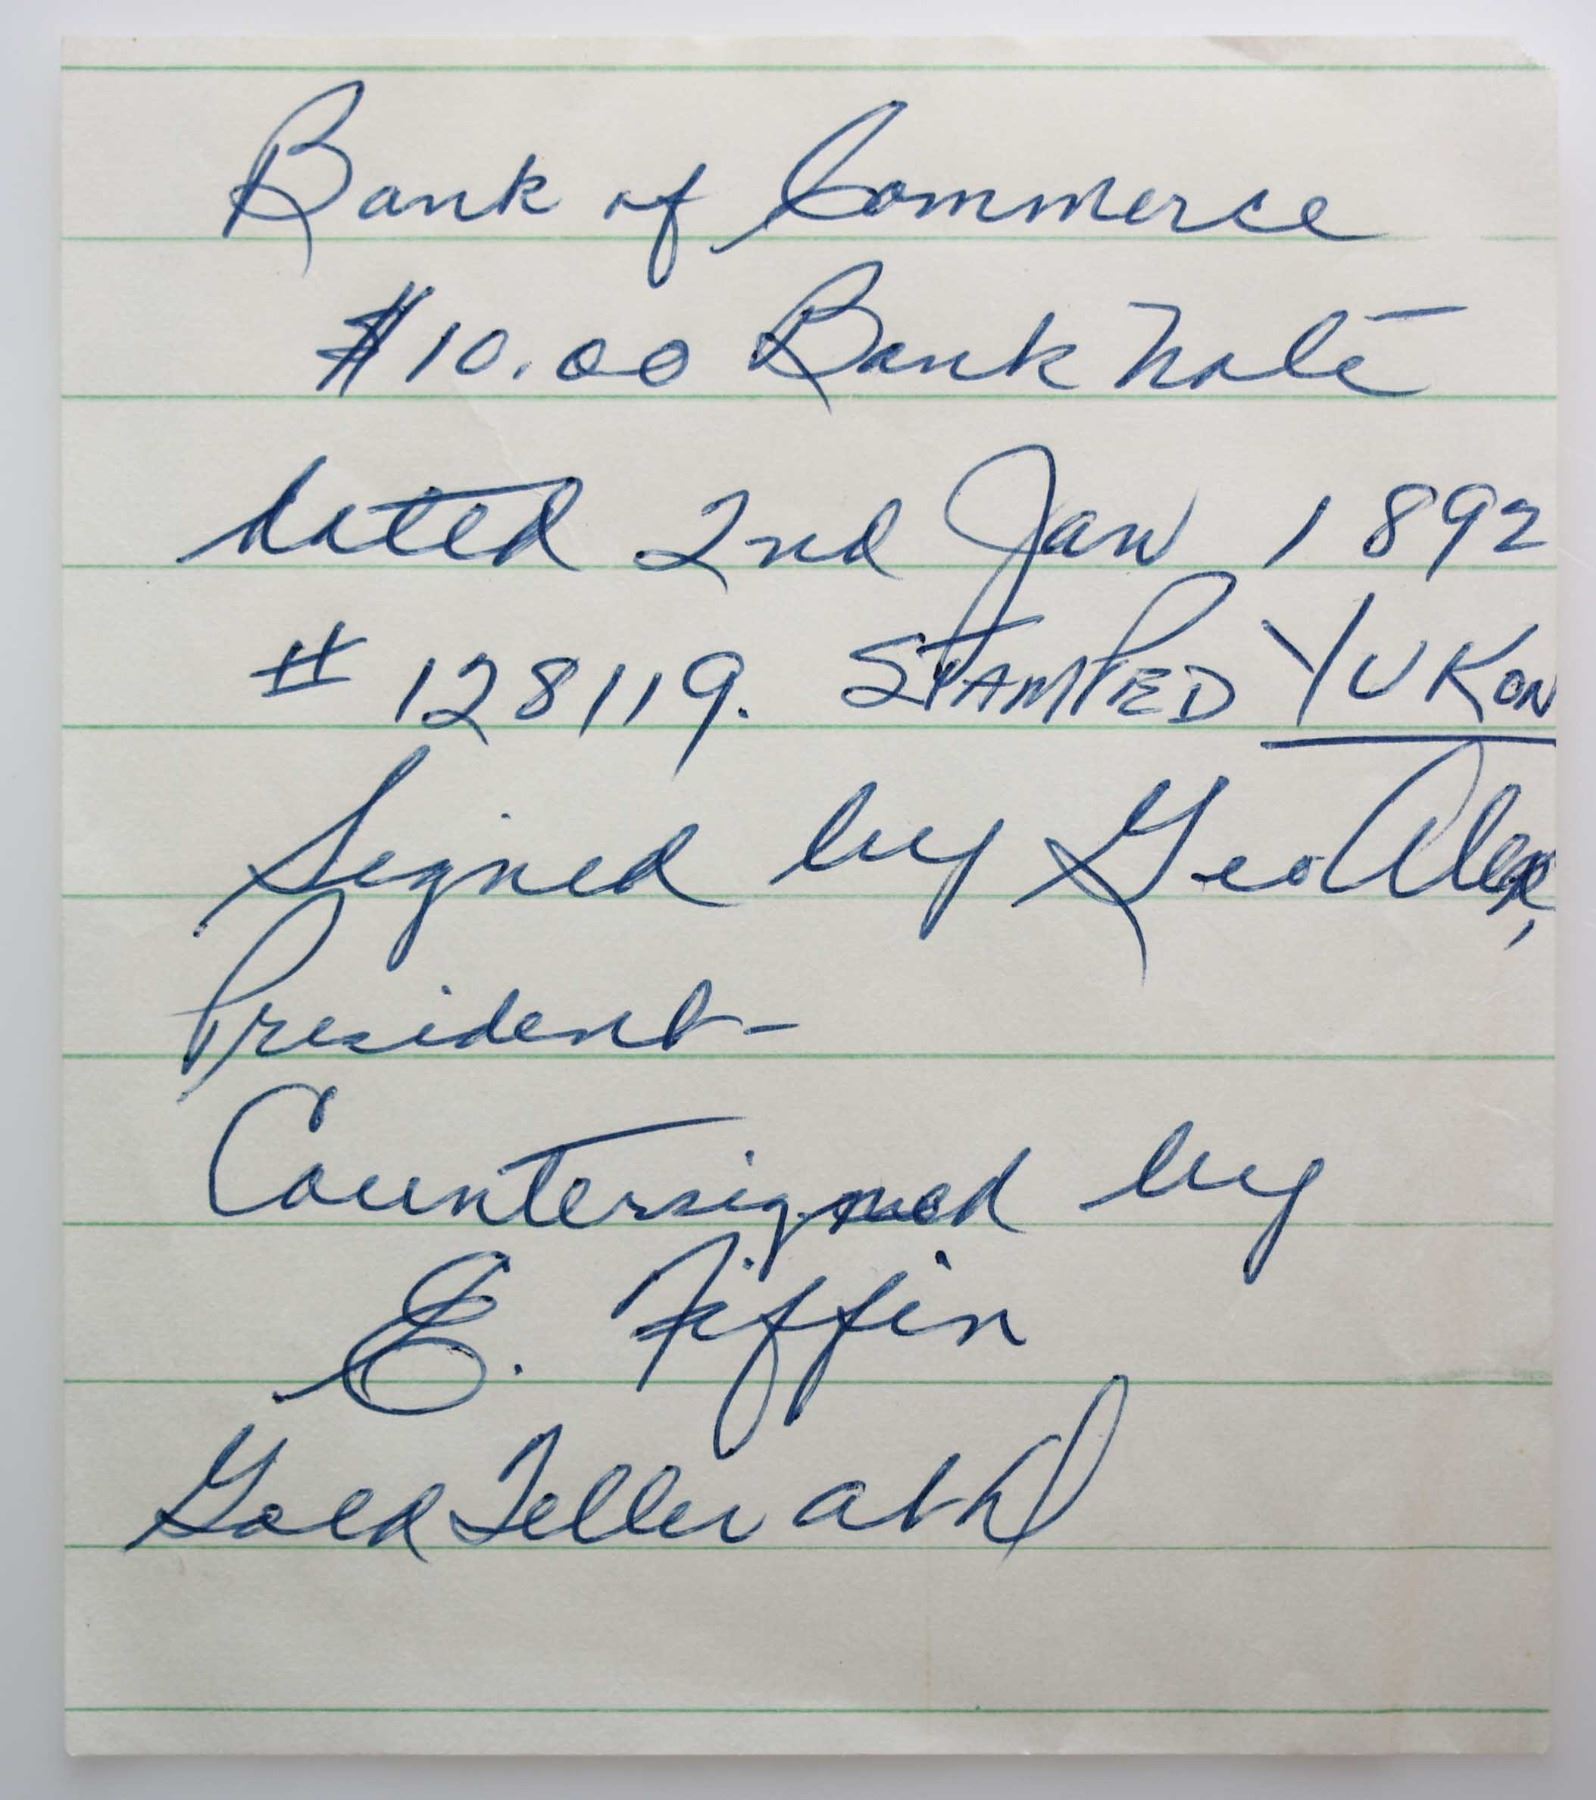 Bank of Commerce
$10.00 Bank Note
dated 2nd Jan 1892
# 128119. STAMPED YUKON
Signed by Geo Alex,
President -
Countersigned by
E. Fiffin
Gold Teller